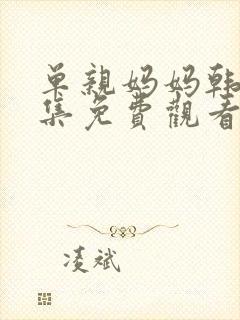 单親妈妈韩
集免費觀看
凌斌